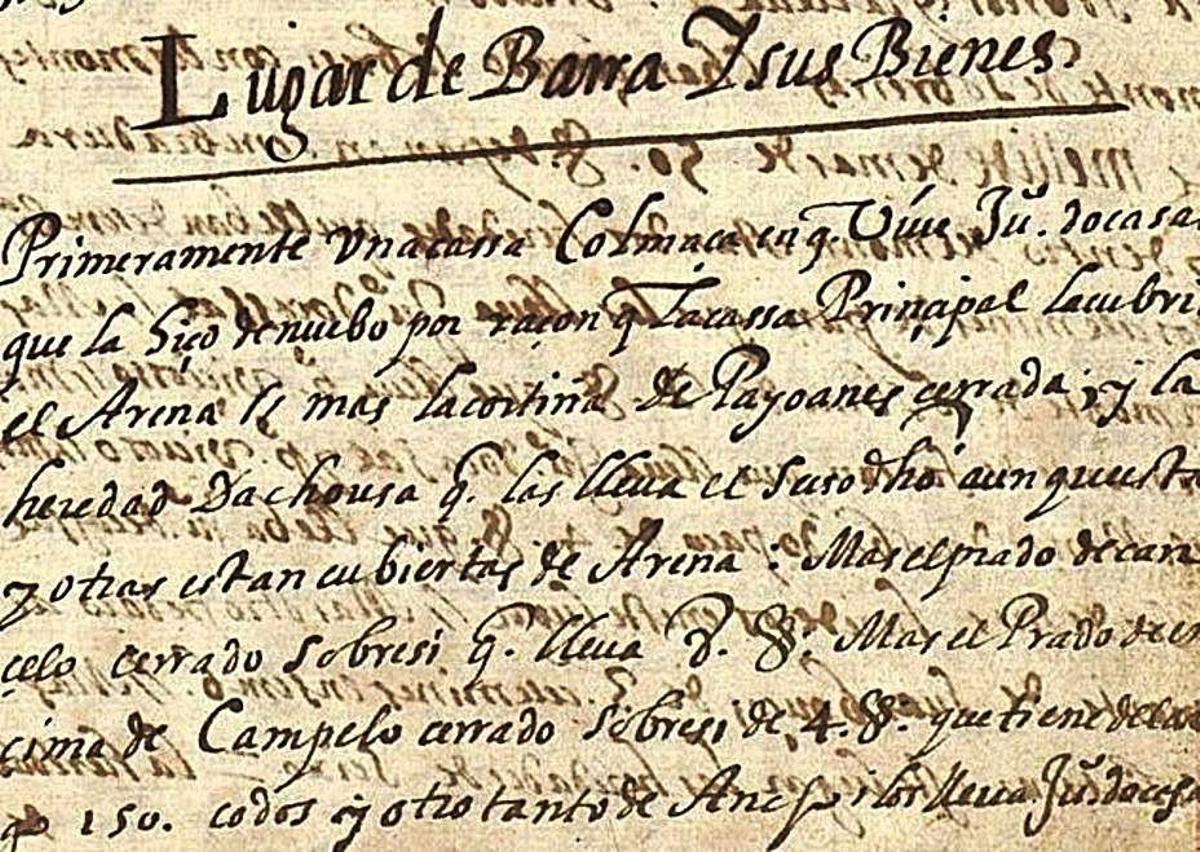 Lugar de Barra Y sus Bienes
Primeramente vna cassa Colmaça en q. Viue Ju. do casa
que la hiço de nuebo por raçon q La cassa Prinçipal la cubri
el Arena Is mas la cortina de Payoanes cerrada; y la
heredad Da chousa q. las lleua el suso dho aunque esta
y otras estan cubiertas de Arena: Mas el prado de can
çelo cerrado sobresi q. lleua 3. f. Mas el Prado de en
cima de Campelo cerrado sobresi de 4. f. que tiene de la
go 150. codos y otro tanto de Ancho i los lleua Ju. do casa